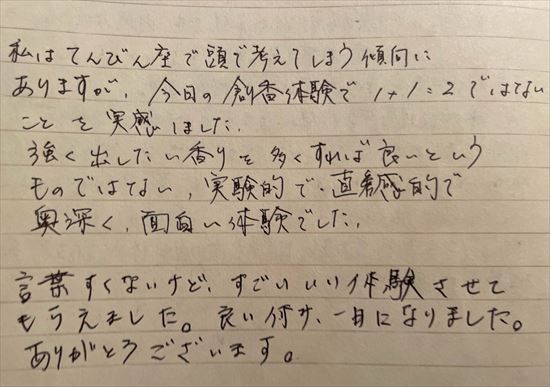 私はてんびん座で頭で考えてしまう傾向に
ありますが、今日の創香体験で1+1=2ではない
ことを実感しました.
強く出したい香りを多くすれば良いという
ものではない、実験的で、直感的で
奥深く、面白い体験でした.
言葉すくないけど、すごいいい体験させて
もらえました。良い 一日になりました。
ありがとうございます。